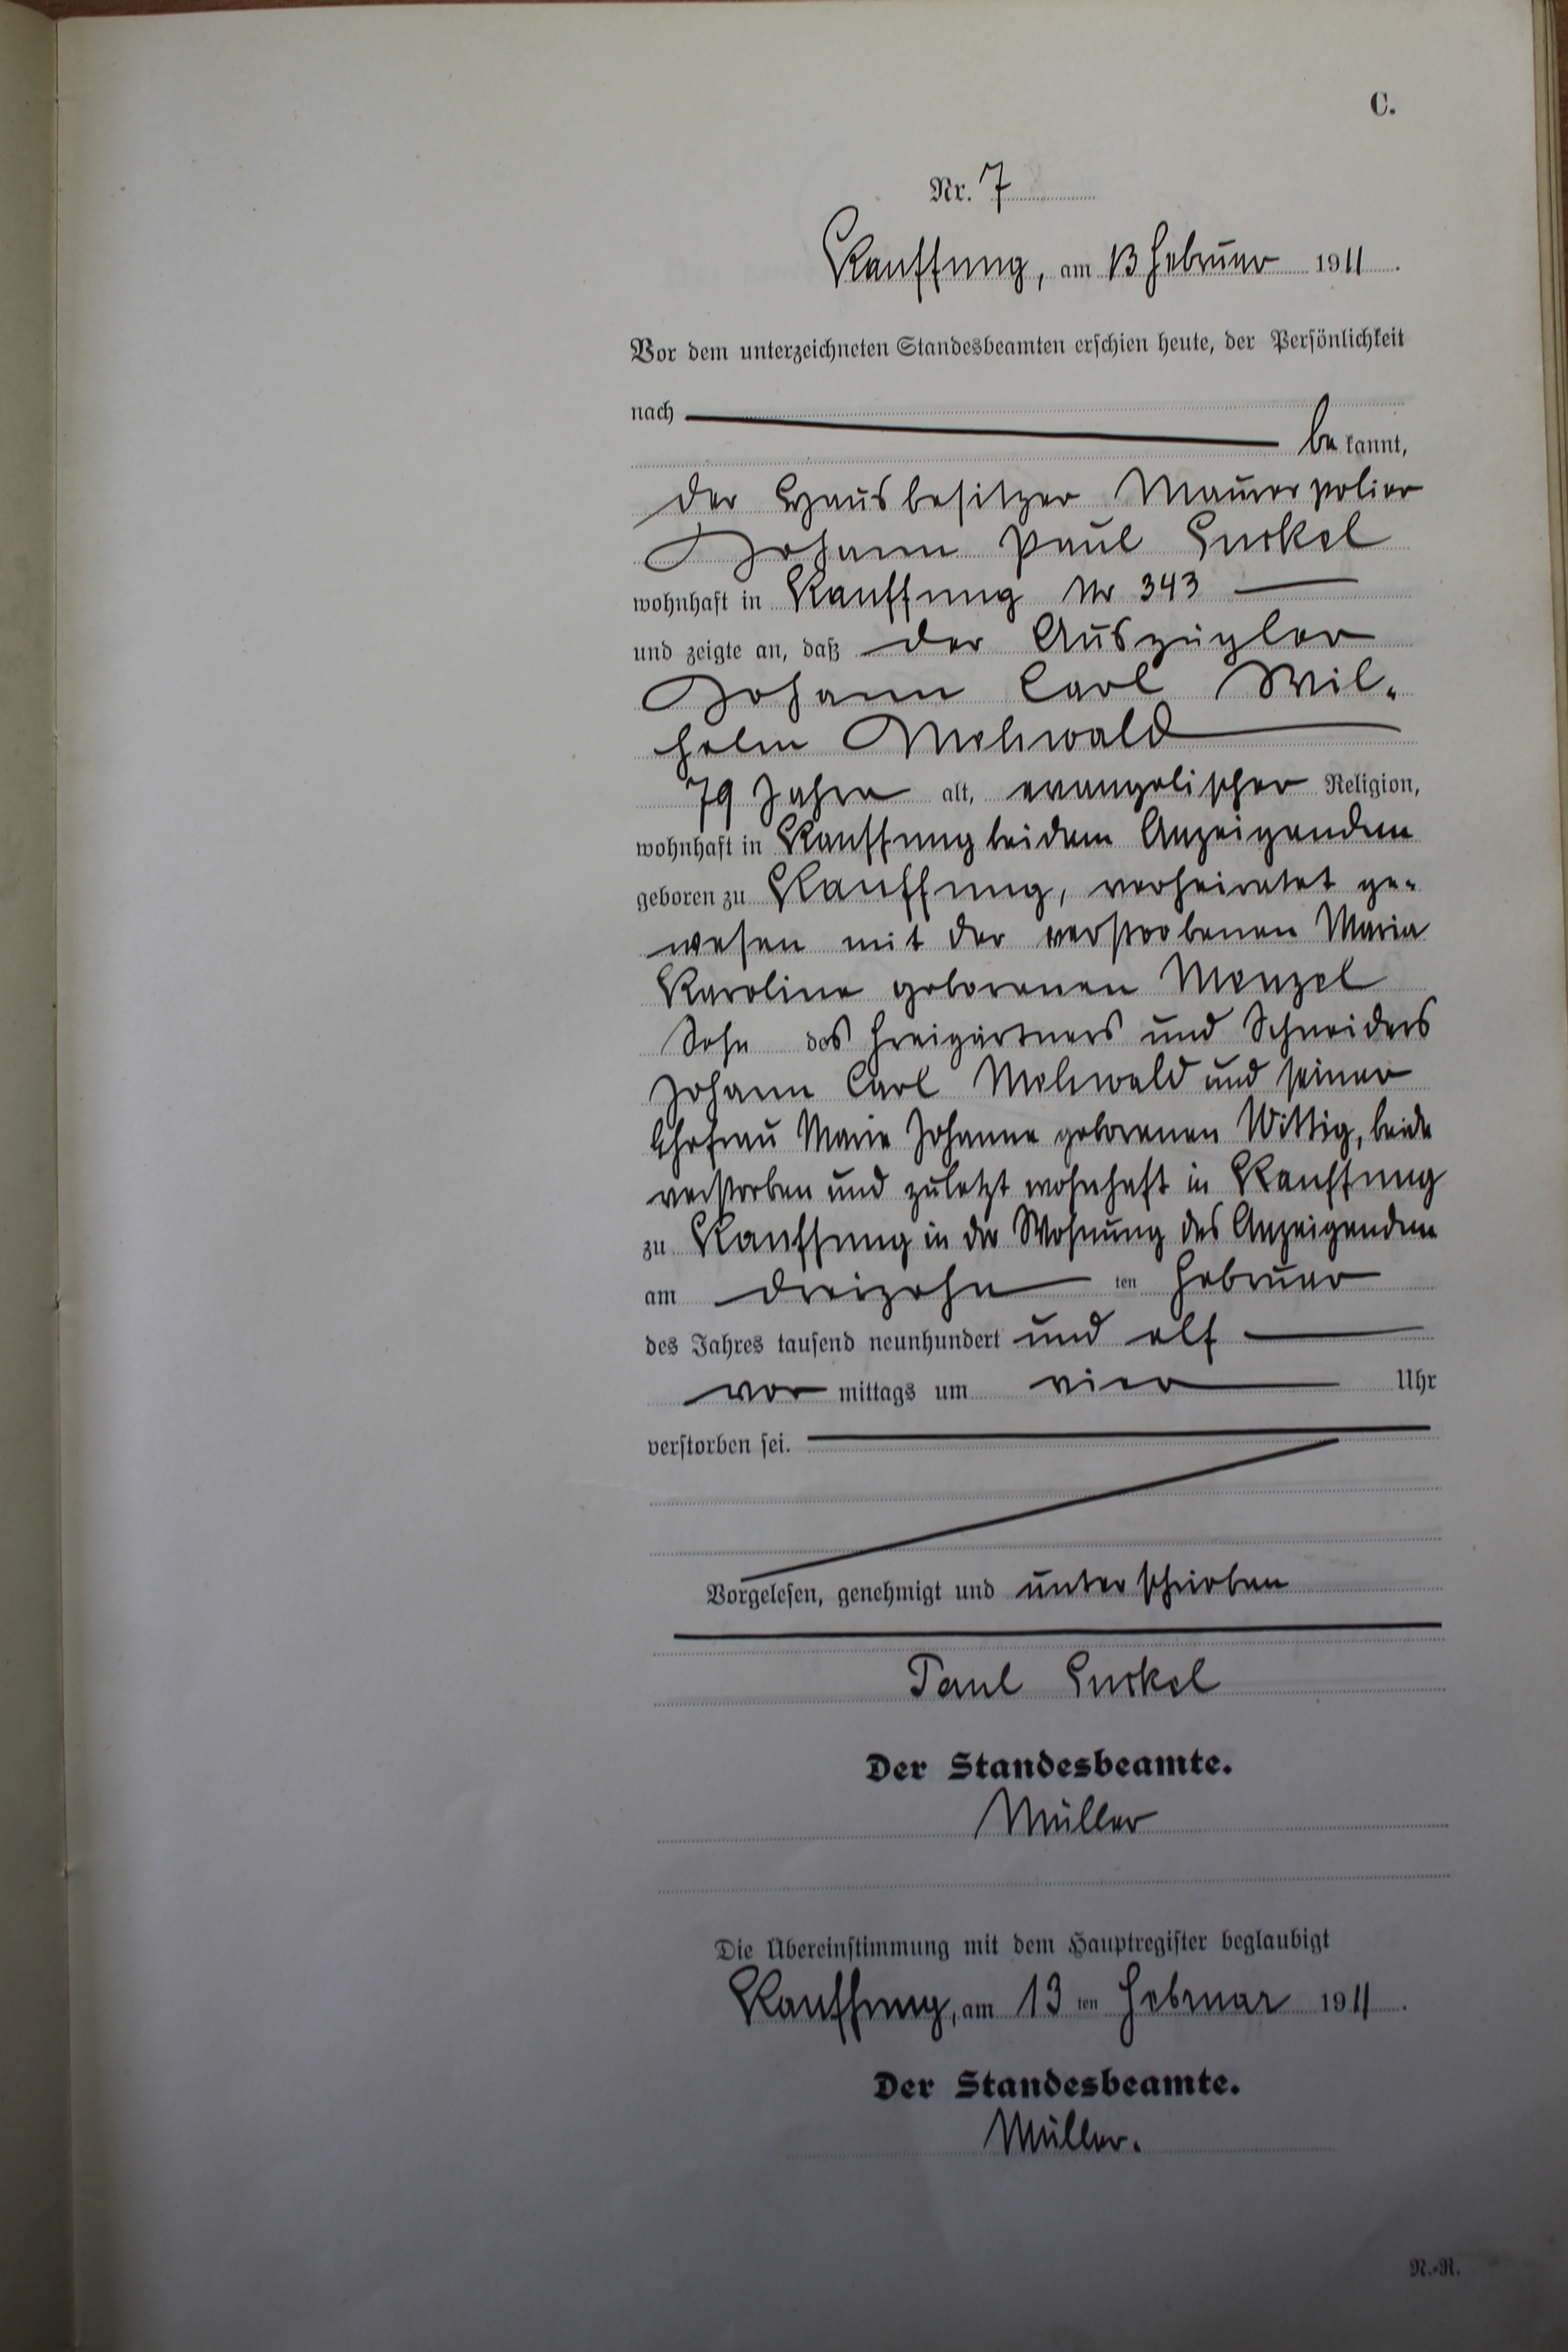 C.
Nr. 7
Kauffung, am 13 Februar 1911.
Vor dem unterzeichneten Standesbeamten erschien heute, der Persönlichkeit
nach
be kannt,
der Hausbesitzer Maurerpolier
Johann Paul
wohnhaft in Kauffung Nr 343
und zeigte an, daß der Auszügler
Johann Carl Wil-
helm Mehwald
79 Jahre alt, evangelischer Religion,
wohnhaft in Kauffung bei dem Anzeigenden
geboren zu Kauffung, verheiratet ge-
wesen mit der verstorbenen Maria
Karoline geborenen Menzel
Sohn des Freigärtners und Schneiders
Johann Carl Mehwald und seiner
Ehefrau Marie Johanne geborenen Wittig, beide
verstorben und zuletzt wohnhaft in Kauffung
zu Kauffung in der Wohnung des Anzeigenden
am dreizehn ten Februar
des Jahres tausend neunhundert und elf
vor mittags um vier Uhr
verstorben sei.
Vorgelesen, genehmigt und unterschrieben
Paul
Der Standesbeamte.
Müller
Die Übereinstimmung mit dem Hauptregister beglaubigt
Kauffung, am 13 ten Februar 1911.
Der Standesbeamte.
Müller.
N.-R.